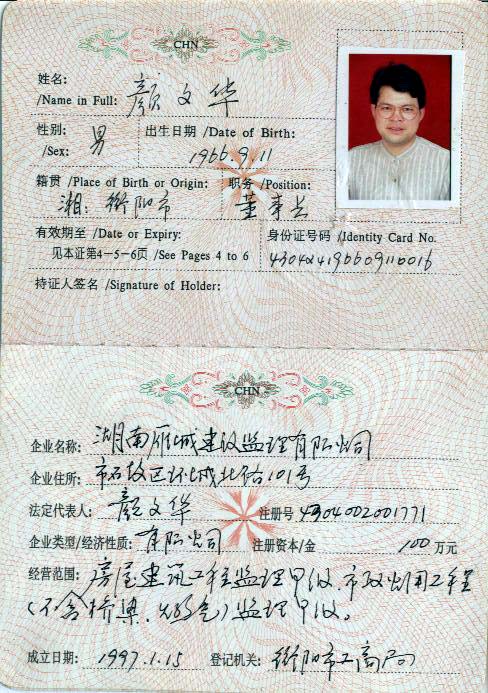 CHN
姓名:
/Name in Full: 颜文华
性别: 男 出生日期 /Date of Birth:
/Sex: 1966.9.11
籍贯 /Place of Birth or Origin: 职务 /Position:
湘:衡阳市 董事长
有效期至 /Date or Expiry: 身份证号码 /Identity Card No.
见本证第4-5-6页 /See Pages 4 to 6 430424196609110016
持证人签名 /Signature of Holder:
CHN
企业名称: 湖南雁城建设监理有限公司
企业住所: 市石鼓区环城北路101号
法定代表人: 颜文华 注册号 4304002001771
企业类型/经济性质: 有限公司 注册资本/金 100 万元
经营范围: 房屋建筑工程监理甲级、市政公用工程
(不含桥梁、)监理甲级。
成立日期: 1997.1.15 登记机关: 衡阳市工商局